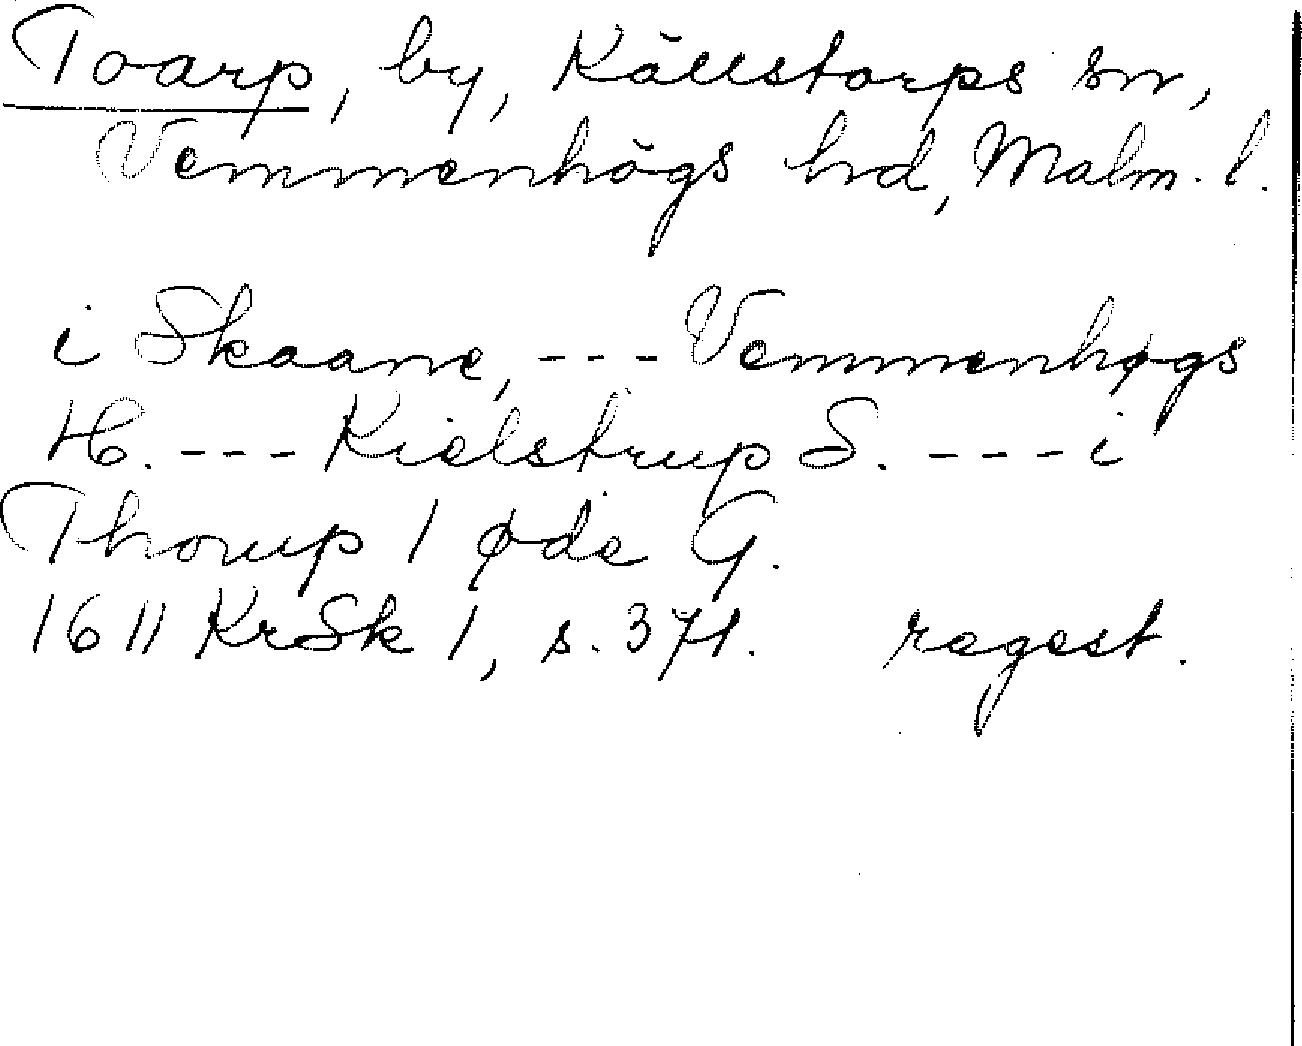 Toarp, by, Källstorps sn,
Vemmenhögs hd, Malm. l.
i Skaane, --- Vemmenhøgs
H. --- Kielstrup S. --- i
Thorup 1 øde G.
1611 KrSk 1, s. 371. regest.